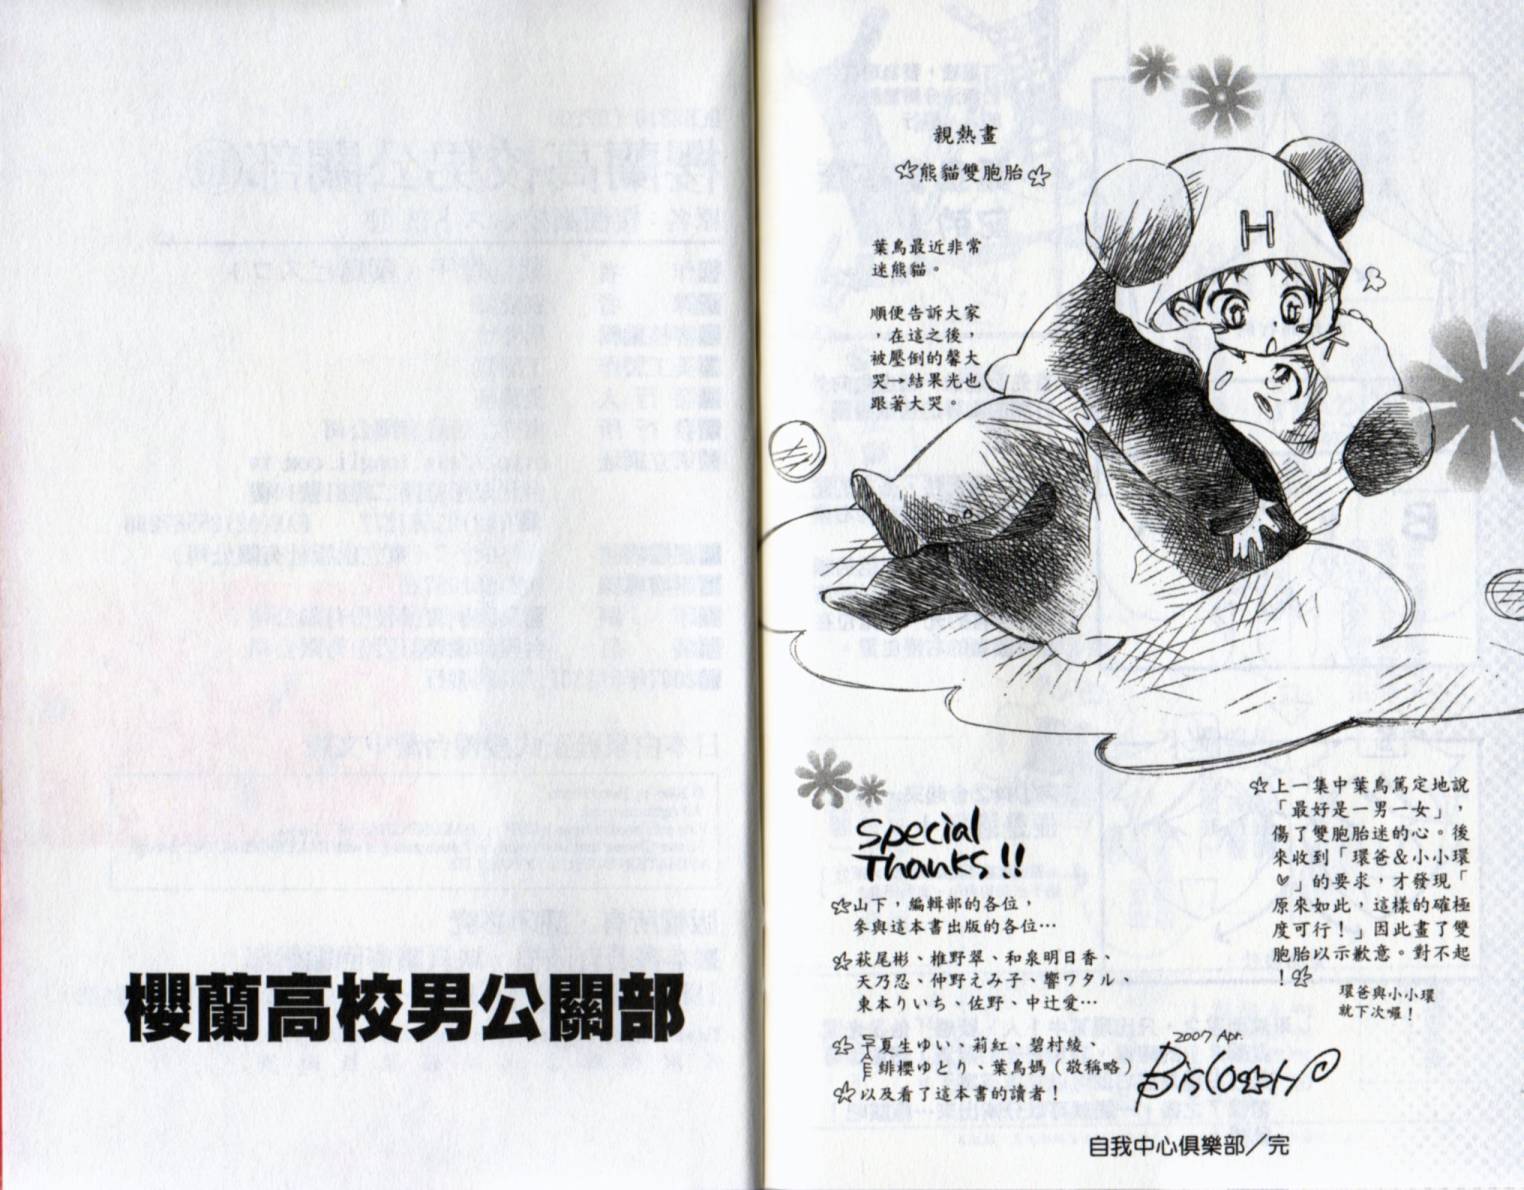 親熱畫
熊貓雙胞胎
葉鳥最近非常
迷熊貓。
順便告訴大家
,在這之後,
被壓倒的馨大
哭→結果光也
跟著大哭。
H
K
上一集中葉鳥篤定地說
「最好是一男一女」,
傷了雙胞胎迷的心。後
來收到「環爸&小小環
♡」的要求,才發現「
原來如此,這樣的確極
度可行!」因此畫了雙
胞胎以示歉意。對不起
!
環爸與小小環
就下次囉!
Special
Thanks!!
山下,編輯部的各位,
參與這本書出版的各位…
萩尾彬、椎野翠、和泉明日香、
天乃忍、仲野えみ子、響ワタル、
東本りいち、佐野、中辻愛…
STAFF夏生ゆい、莉紅、碧村綾、
緋櫻ゆとり、葉鳥媽(敬稱略)
以及看了這本書的讀者!
2007 Apr.
Bisco☆H
自我中心俱樂部/完
櫻蘭高校男公關部